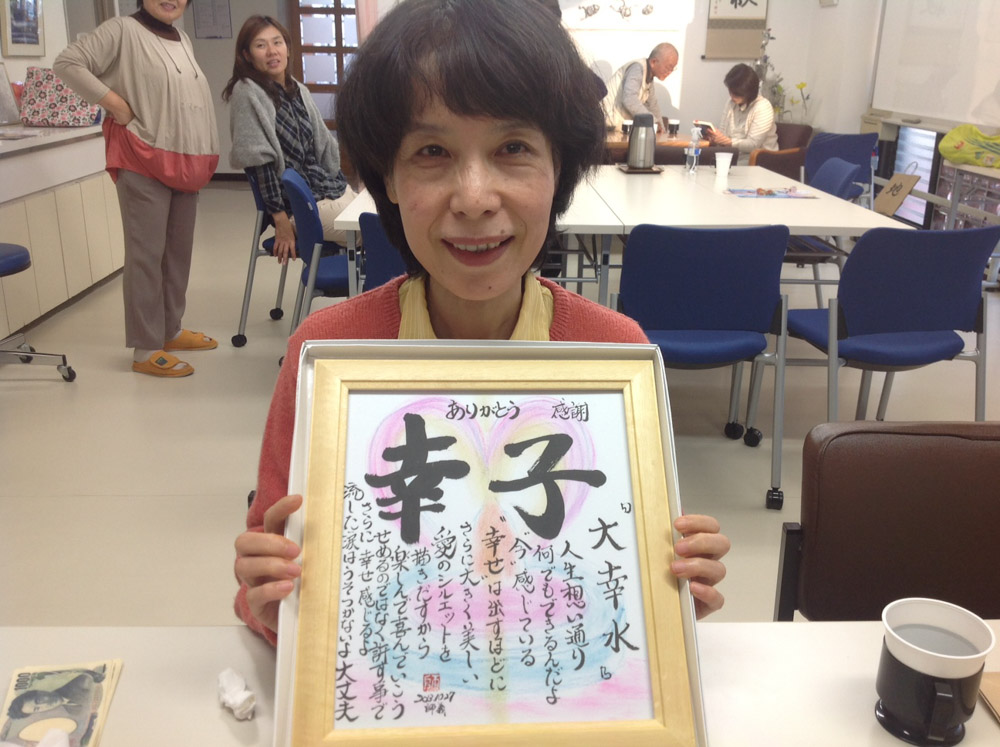 ありがとう 感謝
幸子
「大幸水」
人生想い通り
何でもできるんだよ
"今"感じている
"幸せ"は出すほどに
さらに大きく美しい
愛のシルエットを
描きだすから
楽しんで喜んでいこう
せめるのではなく許す事で
さらに幸せ感じるよ
流した涙はうそつかないよ 大丈夫